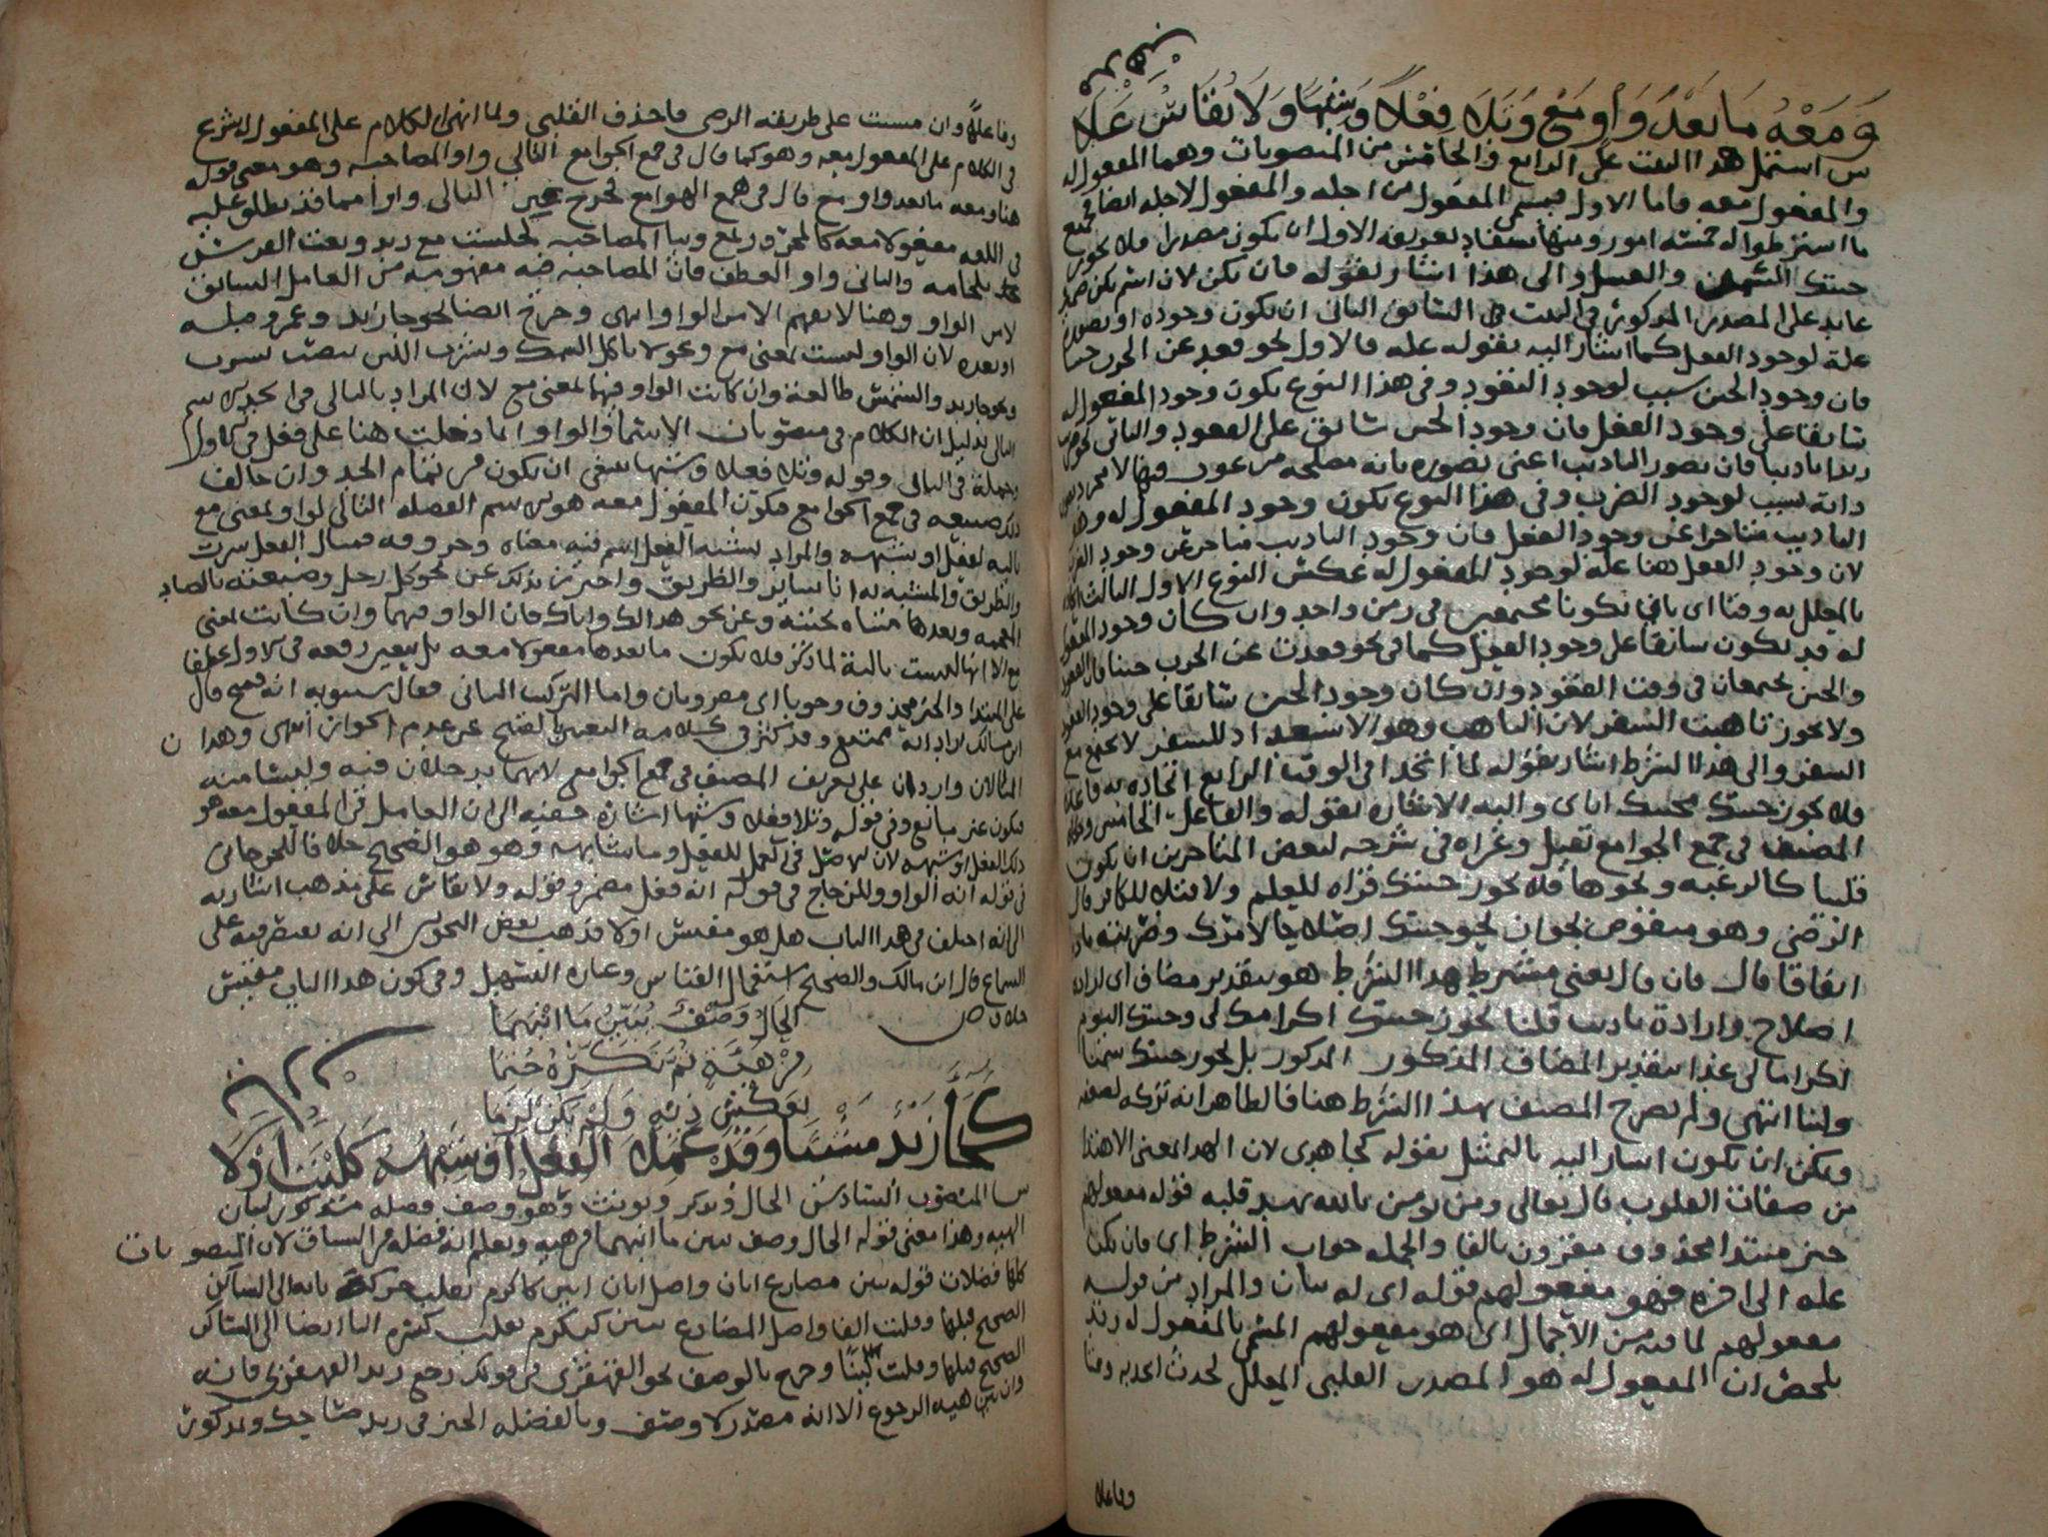 وَمَعْهُ مَا بَعْدُ وَاوِ مَعْ وَتَلَا فِعْلًا وَشِبْهًا وَلَا يُقَاسُ عَلَى
س اشتمل هذا البيت على الرابع والخامس من المنصوبات وهما المفعول له
والمفعول معه فاما الاول فيسمى المفعول من اجله والمفعول لاجله ايضا
ما اشترطوا له خمسة امور ومنها يستفاد تعريفه الاول ان يكون مصدرا فلا يجوز
جيتك السمن والعسل والى هذا اشار بقوله فان يكن لان اسم يكن ضمير
عايد على المصدر المذكور في البيت السابق الثاني ان يكون وجوده او تصوره
علة لوجود الفعل كما اشار اليه بقوله عله فالاول نحو قعد عن الحرب جبنا
فان وجود الجبن سبب لوجود القعود وفي هذا النوع يكون وجود المفعول له
سابقا على وجود الفعل فان وجود الجبن سابق على القعود والثاني نحو ضرب
زيدا تاديبا فان تصور التاديب اعني تصوره بانه مصلحة
ذاته سبب لوجود الضرب وفي هذا النوع يكون وجود المفعول له وهو
التاديب متاخرا عن وجود الفعل فان وجود التاديب متاخر عن وجود الضرب
لان وجود الفعل هنا علة لوجود المفعول له عكس النوع الاول الثالث
بالمعلل به وقتا اي بان يكونا مجتمعين في زمن واحد وان كان وجود المفعول
له قد يكون سابقا على وجود الفعل كما في نحو قعدت عن الحرب جبنا فان القعود
والجبن يجتمعان في وقت القعود وان كان وجود الجبن سابقا على وجود القعود
ولا يجوز تاهبت السفر لان التاهب وهو الاستعداد للسفر لا يجتمع مع
السفر والى هذا الشرط اشار بقوله لما اتخدا في الوقت الرابع اتحاده به فاعلا
فلا يجوز جيتك محبتك اياي واليه الاشارة بقوله والفاعل الخامس
المصنف في جمع الجوامع تعقبل وعزاه في شرحه لبعض المتاخرين ان يكون
قلبيا كالرغبة ونحوها فلا يجوز جيتك قراة للعلم ولا قتلا للكافر قال
الرضي وهو منقوض بجواز نحو جيتك اصلاحا لامرك وضربته تاديبا
اتفاقا قال فان قال يعني مشترط هذا الشرط هو بتقدير مضاف اي ارادة
اصلاح وارادة تاديب قلنا يجوز جيتك اكرامك لي وجيتك اليوم
اكراما لي غدا بتقدير المضاف المذكور المذكور بل يجوز جيتك سمنا
ولبنا انتهى ولم يصرح المصنف بهذا الشرط هنا فالظاهر انه تركه لضعفه
ويمكن ان يكون اشار اليه بالتمثيل بقوله كجا هدى لان الهدا بمعنى الاهتدا
من صفات القلوب قال تعالى ومن يومن بالله يهد قلبه قوله مفعولهم
خبر مبتدا محذوف مقرون بالفا والجملة جواب الشرط اي فان يكن
عله الى اخره فهو مفعولهم قوله اي له بيان والمراد من قوله
مفعولهم لما فيه من الاجمال اي هو مفعولهم المسمى بالمفعول له
بلخص ان المفعول له هو المصدر القلبي المعلل لحدث اتحد به وقتا
وفاعلا
وفاعلا وان مشيت على طريقة الرضي فاحذف القلبي ولما انهى الكلام على المفعول له شرع
في الكلام على المفعول معه وهو كما قال في جمع الجوامع التالي واو المصاحبة وهو معنى قوله
هنا ومعه ما بعد واو مع قال في همع الهوامع فخرج غير التالي واوا مما قد يطلق عليه
في اللغة مفعولا معه كالمجرور بمع وببا المصاحبة كجلست مع زيد وبعت الفرس
بلجامه والتالي واو العطف فان المصاحبة فيه مفهومة من العامل السابق
لا من الواو وهنا لا يفهم الا من الواو انتهى وخرج ايضا نحو جا زيد وعمرو قبله
او بعده لان الواو ليست بمعنى مع ونحو لا تاكل السمك وتشرب اللبن بنصب تشرب
ونحو جا زيد والشمس طالعة وان كانت الواو فيهما بمعنى مع لان المراد بالتالي في الحد الاسم
التالي بدليل ان الكلام في منصوبات الاسما والواو انما دخلت هنا على فعل في الاول
وجملة في الثاني وقوله وتلا فعلا وشبها ينبغي ان يكون من تمام الحد وان خالف
ذلك صنيعه في جمع الجوامع فيكون المفعول معه هو الاسم الفضلة التالي لواو بمعنى مع
تالية لفعل او شبهه والمراد بشبه الفعل اسم فيه معناه وحروفه فمثال الفعل سرت
والطريق والمشبه له انا ساير والطريق واحترز بذلك عن نحو كل رجل وضيعته بالضاد
المعجمة وبعدها مثناة تحتية وعن نحو هذا لك واباك فان الواو فيهما وان كانت بمعنى
مع الا انها ليست تالية لما ذكر فلا يكون ما بعدها مفعولا معه بل يتعين رفعه في الاول عطفا
على المبتدا والخبر محذوف وجوبا اي مقرونان واما التركيب الثاني فقال سيبويه انه قبيح قال
ابن مالك اراد انه ممتنع وقد كثر في كلامه التعبير بالقبيح عن عدم الجواز انتهى وهذان
المثالان واردان على تعريف المصنف في جمع الجوامع لانهما يدخلان فيه وليسا منه
فيكون غير مانع وفي قوله وتلا فعلا وشبها اشارة خفية الى ان العامل في المفعول معه هو
ذلك الفعل او شبهه لان الاصل في العمل للفعل وما شابهه وهو هو الصحيح خلافا للجرجاني
في قوله انه الواو وللزجاج في قوله انه فعل مضمر وقوله ولا يقاس على مذهب اشار به
الى انه اختلف في هذا الباب هل هو مقيس اولا فذهب بعض النحويين الى انه يقتصر فيه على
السماع قال ابن مالك والصحيح استعمال القياس وعبارة التسهيل وفي كون هذا الباب مقيس
خلاف ص
الحَالُ وَصْفٌ يُبَيِّنُ مَا انْبَهَمَا
مِنْ هَيْئَةٍ ثُمَّ تَنْكِيرُهُ حُتِمَا
بِعَكْسِ ذِيهِ وَلَمْ يَكُنْ لَزِمَا
كَجَا زَيْدٌ مَشْيًا وَقَدْ عَمِلَ الفِعْلُ اَوْ شِبْهُهُ كَلَيْتَ اَوْلَا
س المنصوب السادس الحال وتذكر وتونث وهو وصف فضلة مذكور لبيان
الهية وهذا معنى قوله الحال وصف يبين ما انبهم من هية ويعلم انه فضلة من السياق لان المنصوبات
كلها فضلات قوله يبين مضارع ابان واصل ابان ابين كاكرم نقلت حركة يائه الى الساكن
الصحيح قبلها وقلبت الفا واصل المضارع يبين كيكرم نقلت كسرة اليا ايضا الى الساكن
الصحيح قبلها وخرج بالوصف نحو القهقرى من قولك رجع زيد القهقرى فانه
وان بين هية الرجوع الا انه مصدر لا وصف وبالفضلة الخبر في زيد ضاحك ومذكور